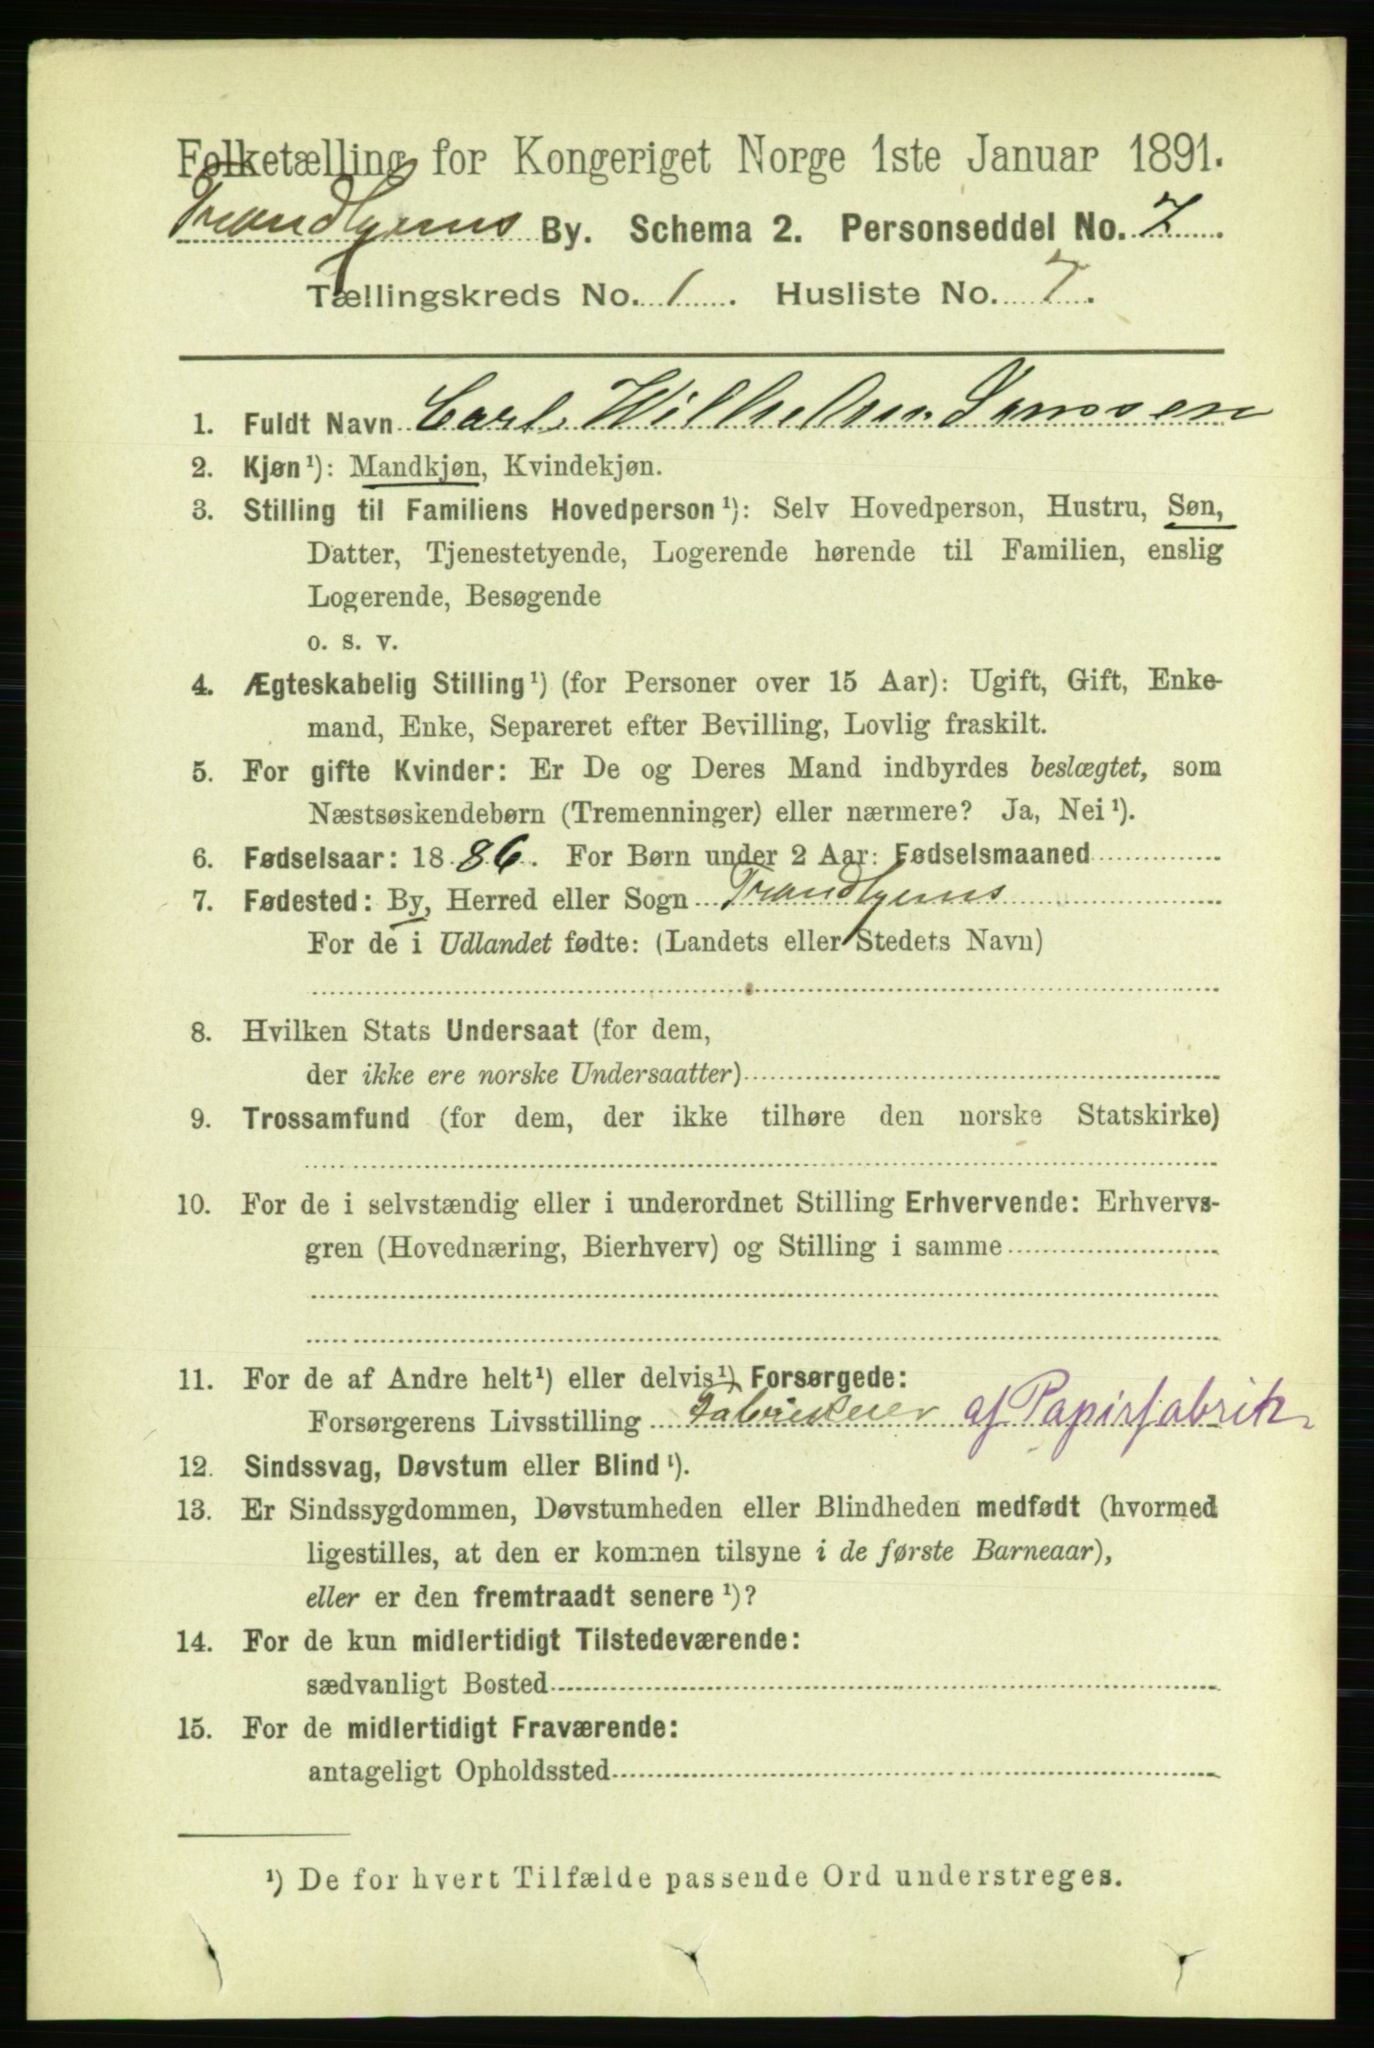 Folketælling for Kongeriget Norge 1ste Januar 1891.
Trondhjems By. Schema 2. Personseddel No. 7.
Tællingskreds No. 1. Husliste No. 7.
1. Fuldt Navn Carl Wilhelm Jenssen
2. Kjøn¹): Mandkjøn, Kvindekjøn.
3. Stilling til Familiens Hovedperson¹): Selv Hovedperson, Hustru, Søn,
Datter, Tjenestetyende, Logerende hørende til Familien, enslig
Logerende, Besøgende
o. s. v.
4. Ægteskabelig Stilling¹) (for Personer over 15 Aar): Ugift, Gift, Enke-
mand, Enke, Separeret efter Bevilling, Lovlig fraskilt.
5. For gifte Kvinder: Er De og Deres Mand indbyrdes beslægtet, som
Næstsøskendebørn (Tremenninger) eller nærmere? Ja, Nei¹).
6. Fødselsaar: 1886. For Børn under 2 Aar: Fødselsmaaned
7. Fødested: By, Herred eller Sogn Trondhjems
For de i Udlandet fødte: (Landets eller Stedets Navn)
8. Hvilken Stats Undersaat (for dem,
der ikke ere norske Undersaatter)
9. Trossamfund (for dem, der ikke tilhøre den norske Statskirke)
10. For de i selvstændig eller i underordnet Stilling Erhvervende: Erhvervs-
gren (Hovednæring, Bierhverv) og Stilling i samme
11. For de af Andre helt¹) eller delvis¹) Forsørgede:
Forsørgerens Livsstilling Fabrikeier af Papirfabrik
12. Sindssvag, Døvstum eller Blind¹).
13. Er Sindssygdommen, Døvstumheden eller Blindheden medfødt (hvormed
ligestilles, at den er kommen tilsyne i de første Barneaar),
eller er den fremtraadt senere¹)?
14. For de kun midlertidigt Tilstedeværende:
sædvanligt Bosted
15. For de midlertidigt Fraværende:
antageligt Opholdssted
¹) De for hvert Tilfælde passende Ord understreges.